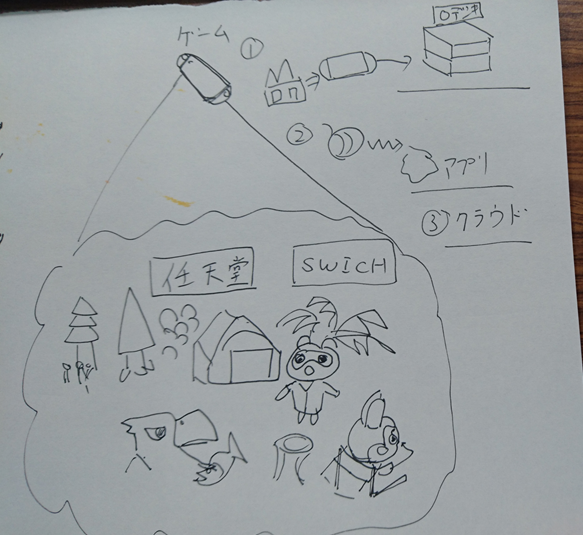 ゲーム
①
ロデオ
②
アプリ
③クラウド
任天堂
SWICH